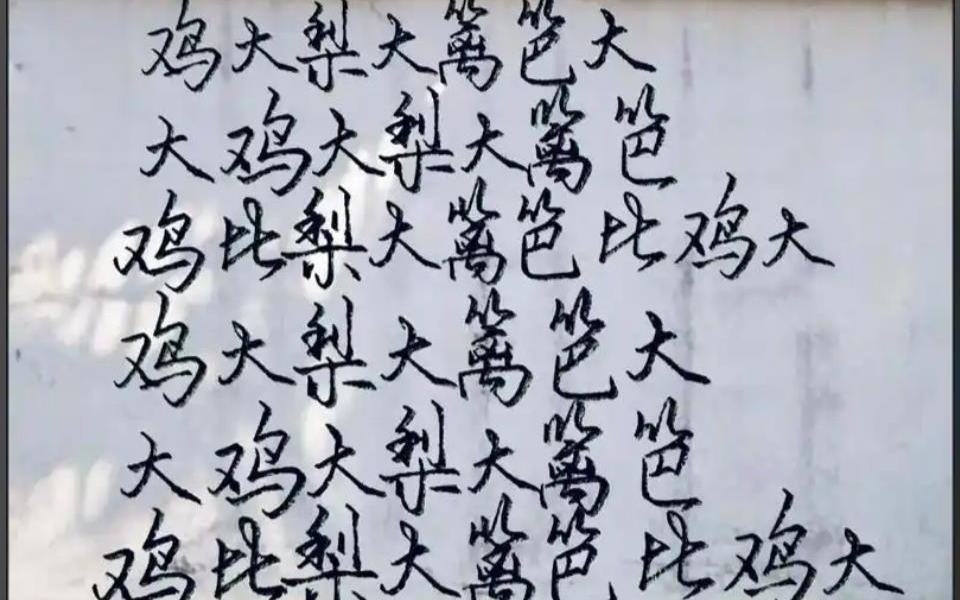 鸡大梨大篱笆大
大鸡大梨大篱笆
鸡比梨大篱笆比鸡大
鸡大梨大篱笆大
大鸡大梨大篱笆
鸡比梨大篱笆比鸡大